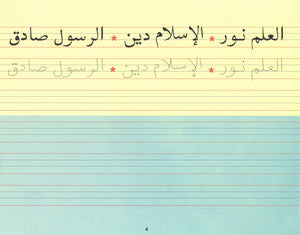 العلم نور * الإسلام دين * الرسول صادق
العلم نور * الإسلام دين * الرسول صادق
4